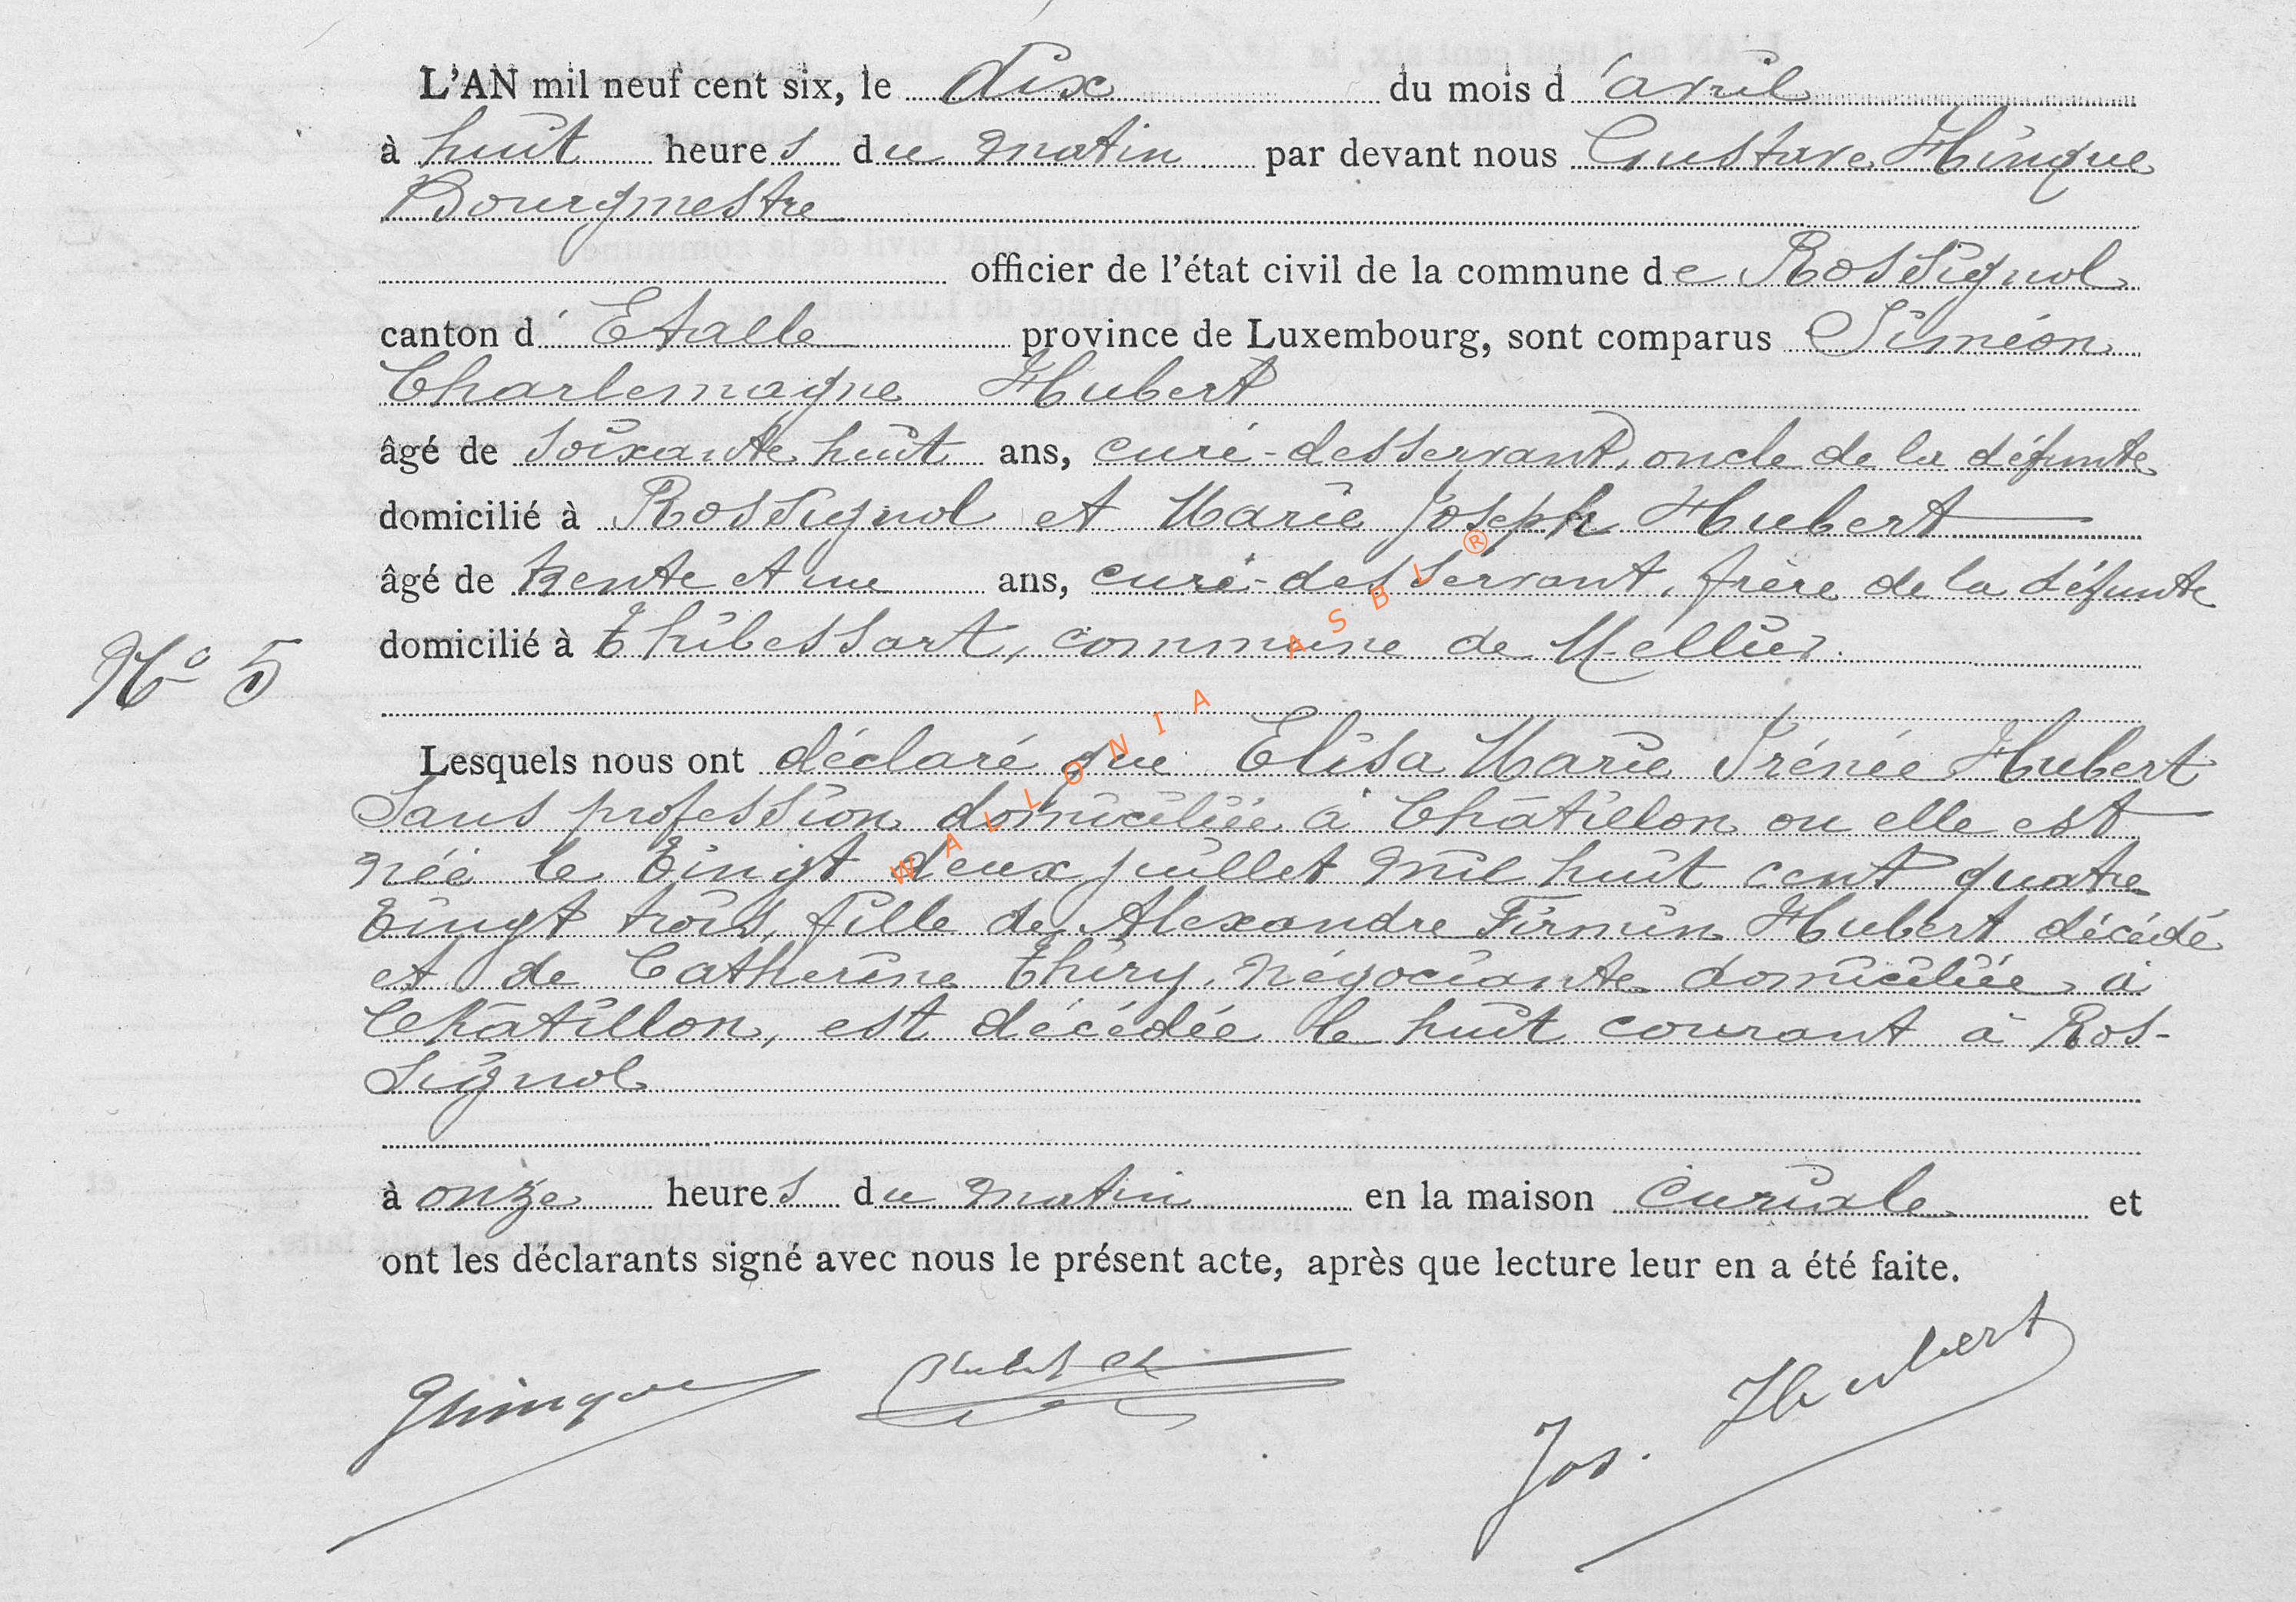 L'AN mil neuf cent six, le dix du mois d'avril
à huit heures du matin par devant nous Gustave Hinque
Bourgmestre
officier de l'état civil de la commune de Rossignol
canton d'Etalle province de Luxembourg, sont comparus Siméon
Charlemagne Hubert
âgé de soixante huit ans, curé-desservant, oncle de la défunte
domicilié à Rossignol et Marie Joseph Hubert
âgé de trente et un ans, curé-desservant, frère de la défunte
domicilié à Thibessart, commune de Mellier.
N° 5
Lesquels nous ont déclaré que Elisa Marie Irénée Hubert
sans profession domiciliée à Châtillon ou elle est
née le vingt deux juillet mil huit cent quatre
vingt trois, fille de Alexandre Firmin Hubert décédé
et de Catherine Thiry, négociante domiciliée à
Châtillon, est décédée le huit courant à Ros-
signol
à onze heures du matin en la maison curiale et
ont les déclarants signé avec nous le présent acte, après que lecture leur en a été faite.
GHinque
Hubert
Jos. Hubert
WALLONIA ASBL ®